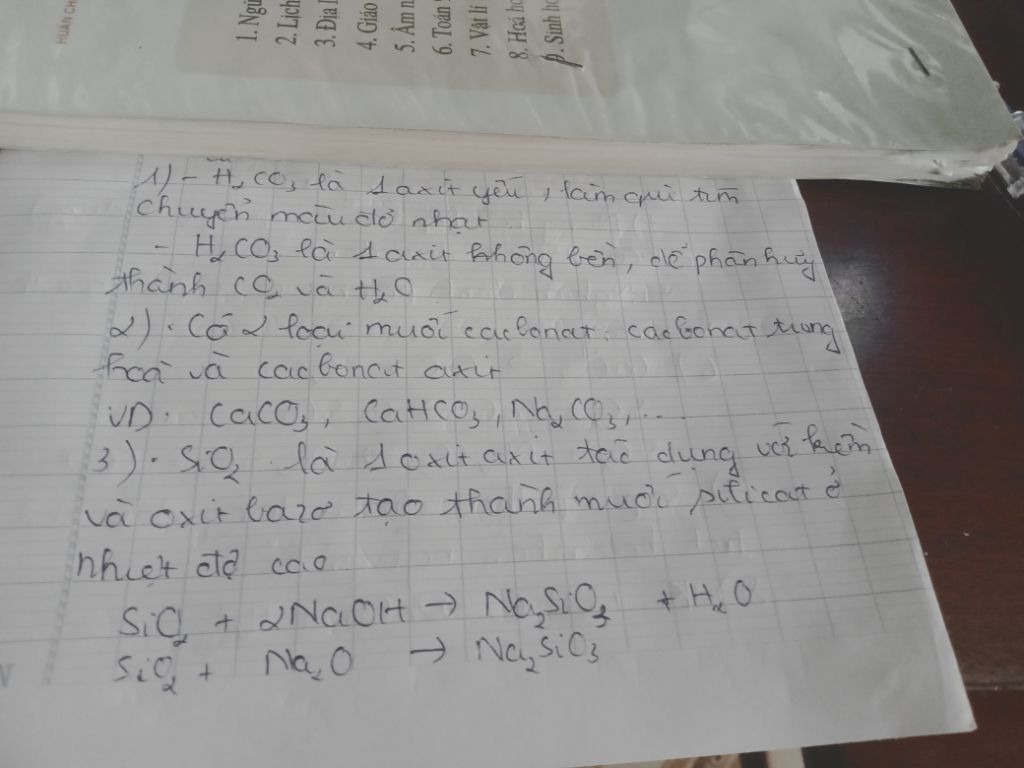 HUÂN CH
1. Ngữ
2. Lịch
3. Địa l
4. Giáo
5. Âm n
6. Toán
7. Vật lí
8. Hoá họ
9. Sinh họ
1) - H₂CO₃ là 1 axit yếu, làm quì tím
chuyển màu đỏ nhạt
- H₂CO₃ là 1 axit không bền, dễ phân huỷ
thành CO₂ và H₂O
2). Có 2 loại muối cacbonat: cacbonat trung
hoà và cacbonat axit
VD: CaCO₃, CaHCO₃, Na₂CO₃, ...
3). SiO₂ là 1 oxit axit tác dụng với kiềm
và oxit bazơ tạo thành muối silicat ở
nhiệt độ cao
SiO₂ + 2NaOH → Na₂SiO₃ + H₂O
SiO₂ + Na₂O → Na₂SiO₃